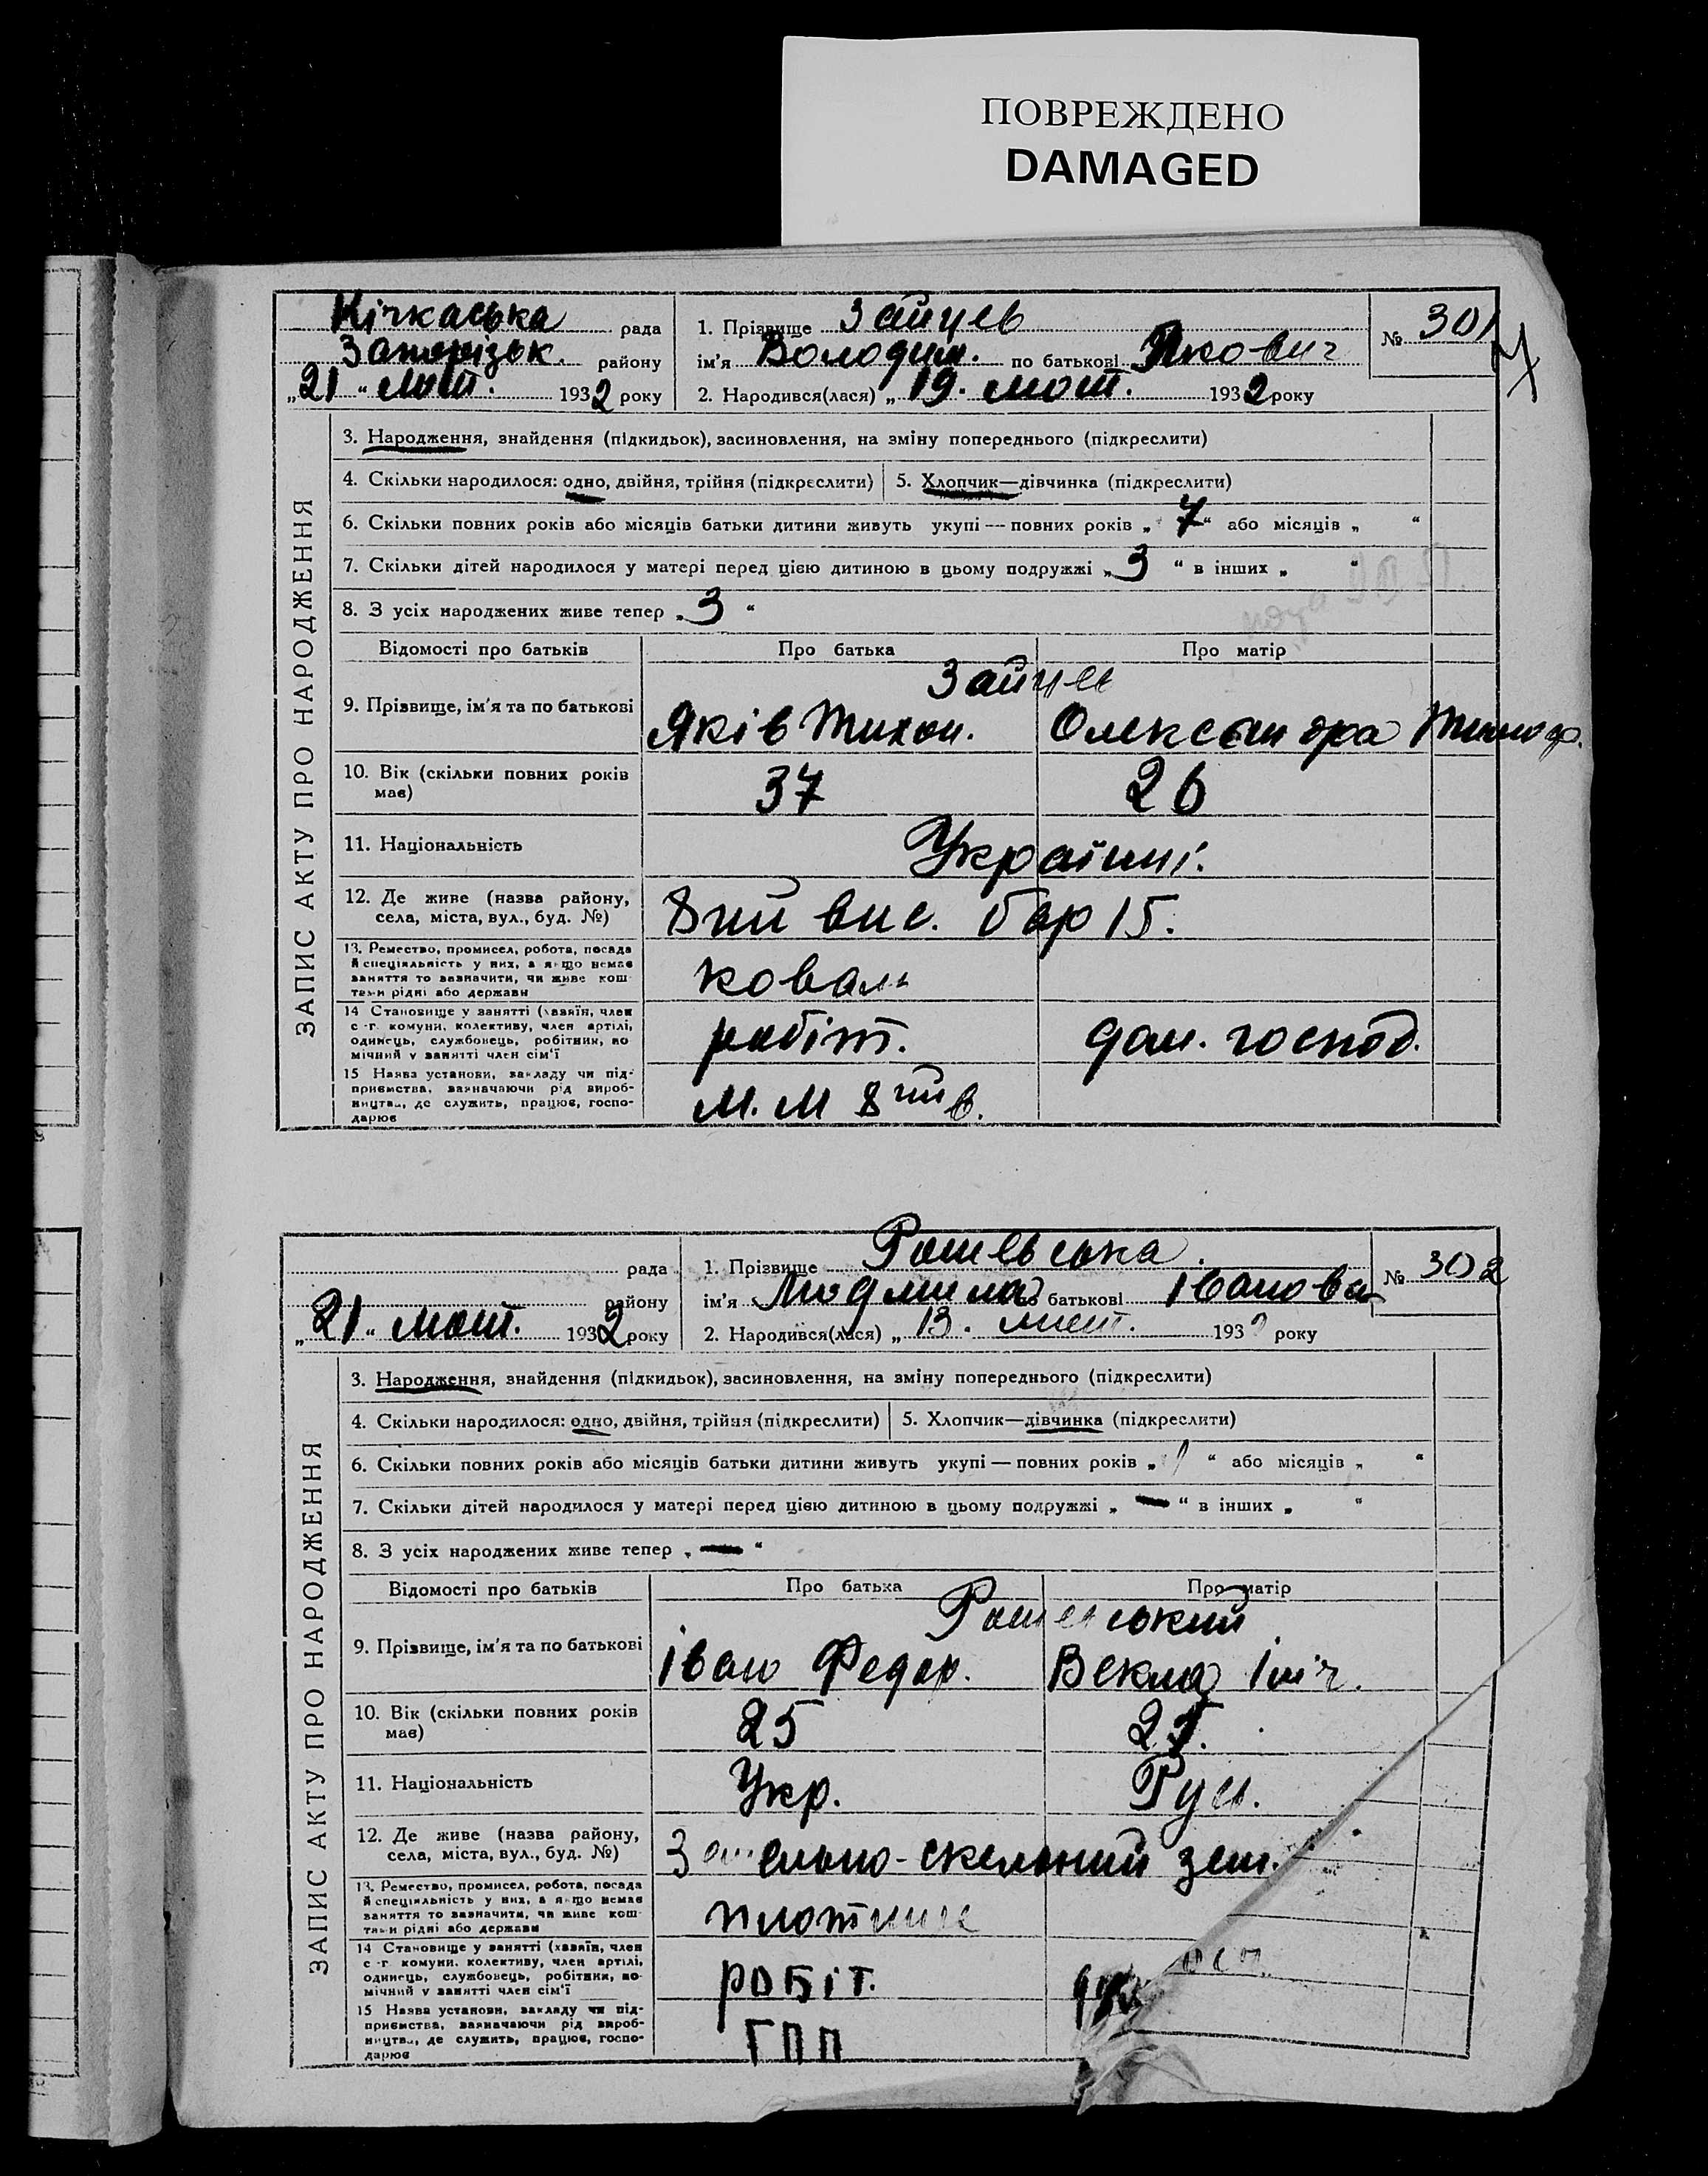 ПОВРЕЖДЕНО
DAMAGED
Кічкаська рада
Запорізьк. району
„21“ лют. 1932 року
1. Прізвище Зайцев
ім'я Володим. по батькові Якович
2. Народився(лася) „19. лют. 1932 року
№ 301
ЗАПИС АКТУ ПРО НАРОДЖЕННЯ
3. Народження, знайдення (підкидьок), засиновлення, на зміну попереднього (підкреслити)
4. Скільки народилося: одно, двійня, трійня (підкреслити) 5. Хлопчик—дівчинка (підкреслити)
6. Скільки повних років або місяців батьки дитини живуть укупі — повних років „7“ або місяців „ “
7. Скільки дітей народилося у матері перед цією дитиною в цьому подружжі „3 “ в інших „ “
8. З усіх народжених живе тепер „3 “
Відомості про батьків Про батька Про матір
Зайцев
9. Прізвище, ім'я та по батькові Яків Тихон. Олександра Тимоф.
10. Вік (скільки повних років має) 37 26
11. Національність Україні.
12. Де живе (назва району,
села, міста, вул., буд. №) 8ий вис. бар 15.
13. Ремество, промисел, робота, посада
й спеціяльність у них, а якщо немає
заняття то зазначити, чи живе кош-
тами рідні або держави коваль
14 Становище у занятті (хазяїн, член
с.-г. комуни, колективу, член артілі,
одинець, службовець, робітник, по-
мічний у занятті член сім'ї робіт. дом. господ.
15 Назва установи, закладу чи під-
приємства, зазначаючи рід вироб-
ництва, де служить, працює, госпо-
дарює М.М 8ий в.
рада
району
„21“ лют. 1932 року
1. Прізвище Рашевська.
ім'я Людмила по батькові Іванова
2. Народився(лася) „13. лют. 193 року
№ 302
ЗАПИС АКТУ ПРО НАРОДЖЕННЯ
3. Народження, знайдення (підкидьок), засиновлення, на зміну попереднього (підкреслити)
4. Скільки народилося: одно, двійня, трійня (підкреслити) 5. Хлопчик—дівчинка (підкреслити)
6. Скільки повних років або місяців батьки дитини живуть укупі — повних років „ “ або місяців „ “
7. Скільки дітей народилося у матері перед цією дитиною в цьому подружжі „ — “ в інших „ “
8. З усіх народжених живе тепер „ — “
Відомості про батьків Про батька Про матір
Рашевський
9. Прізвище, ім'я та по батькові Іван Федор. Векла
10. Вік (скільки повних років має) 25
11. Національність Укр. Русс.
12. Де живе (назва району,
села, міста, вул., буд. №) скельний зем.
13. Ремество, промисел, робота, посада
й спеціяльність у них, а якщо немає
заняття то зазначити, чи живе кош-
тами рідні або держави плотник
14 Становище у занятті (хазяїн, член
с.-г. комуни, колективу, член артілі,
одинець, службовець, робітник, по-
мічний у занятті член сім'ї робіт.
15 Назва установи, закладу чи під-
приємства, зазначаючи рід вироб-
ництва, де служить, працює, госпо-
дарює ГПП